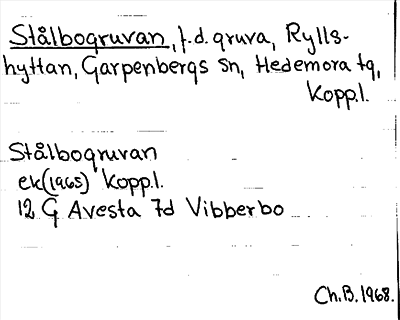 Stålbogruvan, f.d. gruva, Rylls-
hyttan, Garpenbergs sn, Hedemora tg,
Kopp.l.
Stålbogruvan
ek(1965) Kopp.l.
12 G Avesta 7d Vibberbo
Ch.B. 1968.